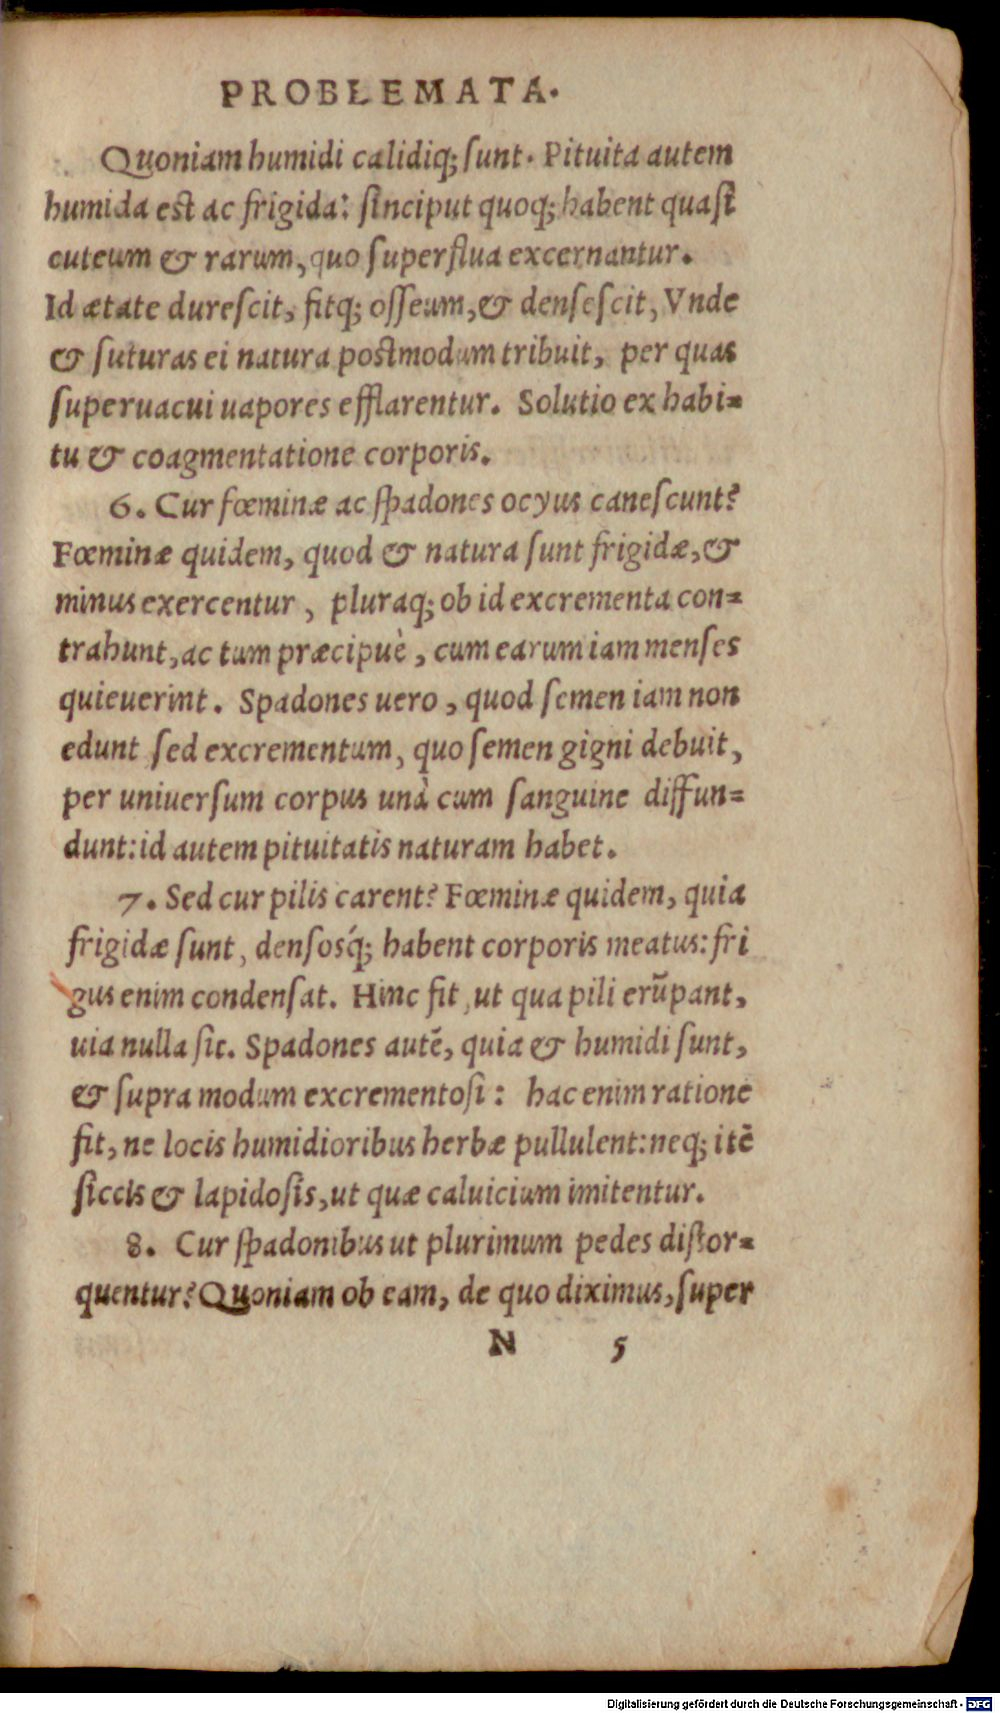 PROBLEMATA.
Quoniam humidi calidiq́; sunt. Pituita autem
humida est ac frigida: sinciput quoq; habent quasi
cuteum & rarum, quo superflua excernantur.
Id ætate durescit, fitq; osseum, & densescit, Vnde
& suturas ei natura postmodum tribuit, per quas
superuacui uapores efflarentur. Solutio ex habi=
tu & coagmentatione corporis.
6. Cur fœminæ ac spadones ocyus canescunt?
Fœminæ quidem, quod & natura sunt frigidæ, &
minus exercentur, pluraq; ob id excrementa con=
trahunt, ac tum præcipuè, cum earum iam menses
quieuerint. Spadones uero, quod semen iam non
edunt sed excrementum, quo semen gigni debuit,
per uniuersum corpus unà cum sanguine diffun=
dunt: id autem pituitatis naturam habet.
7. Sed cur pilis carent? Fœminæ quidem, quia
frigidæ sunt, densosq́; habent corporis meatus: fri
gus enim condensat. Hinc fit, ut qua pili erūpant,
uia nulla sit. Spadones autē, quia & humidi sunt,
& supra modum excrementosi: hac enim ratione
fit, ne locis humidioribus herbæ pullulent: neq; itē
siccis & lapidosis, ut quæ caluicium imitentur.
8. Cur spadonibus ut plurimum pedes distor=
quentur? Quoniam ob eam, de quo diximus, super
N 5
Digitalisierung gefördert durch die Deutsche Forschungsgemeinschaft - DFG